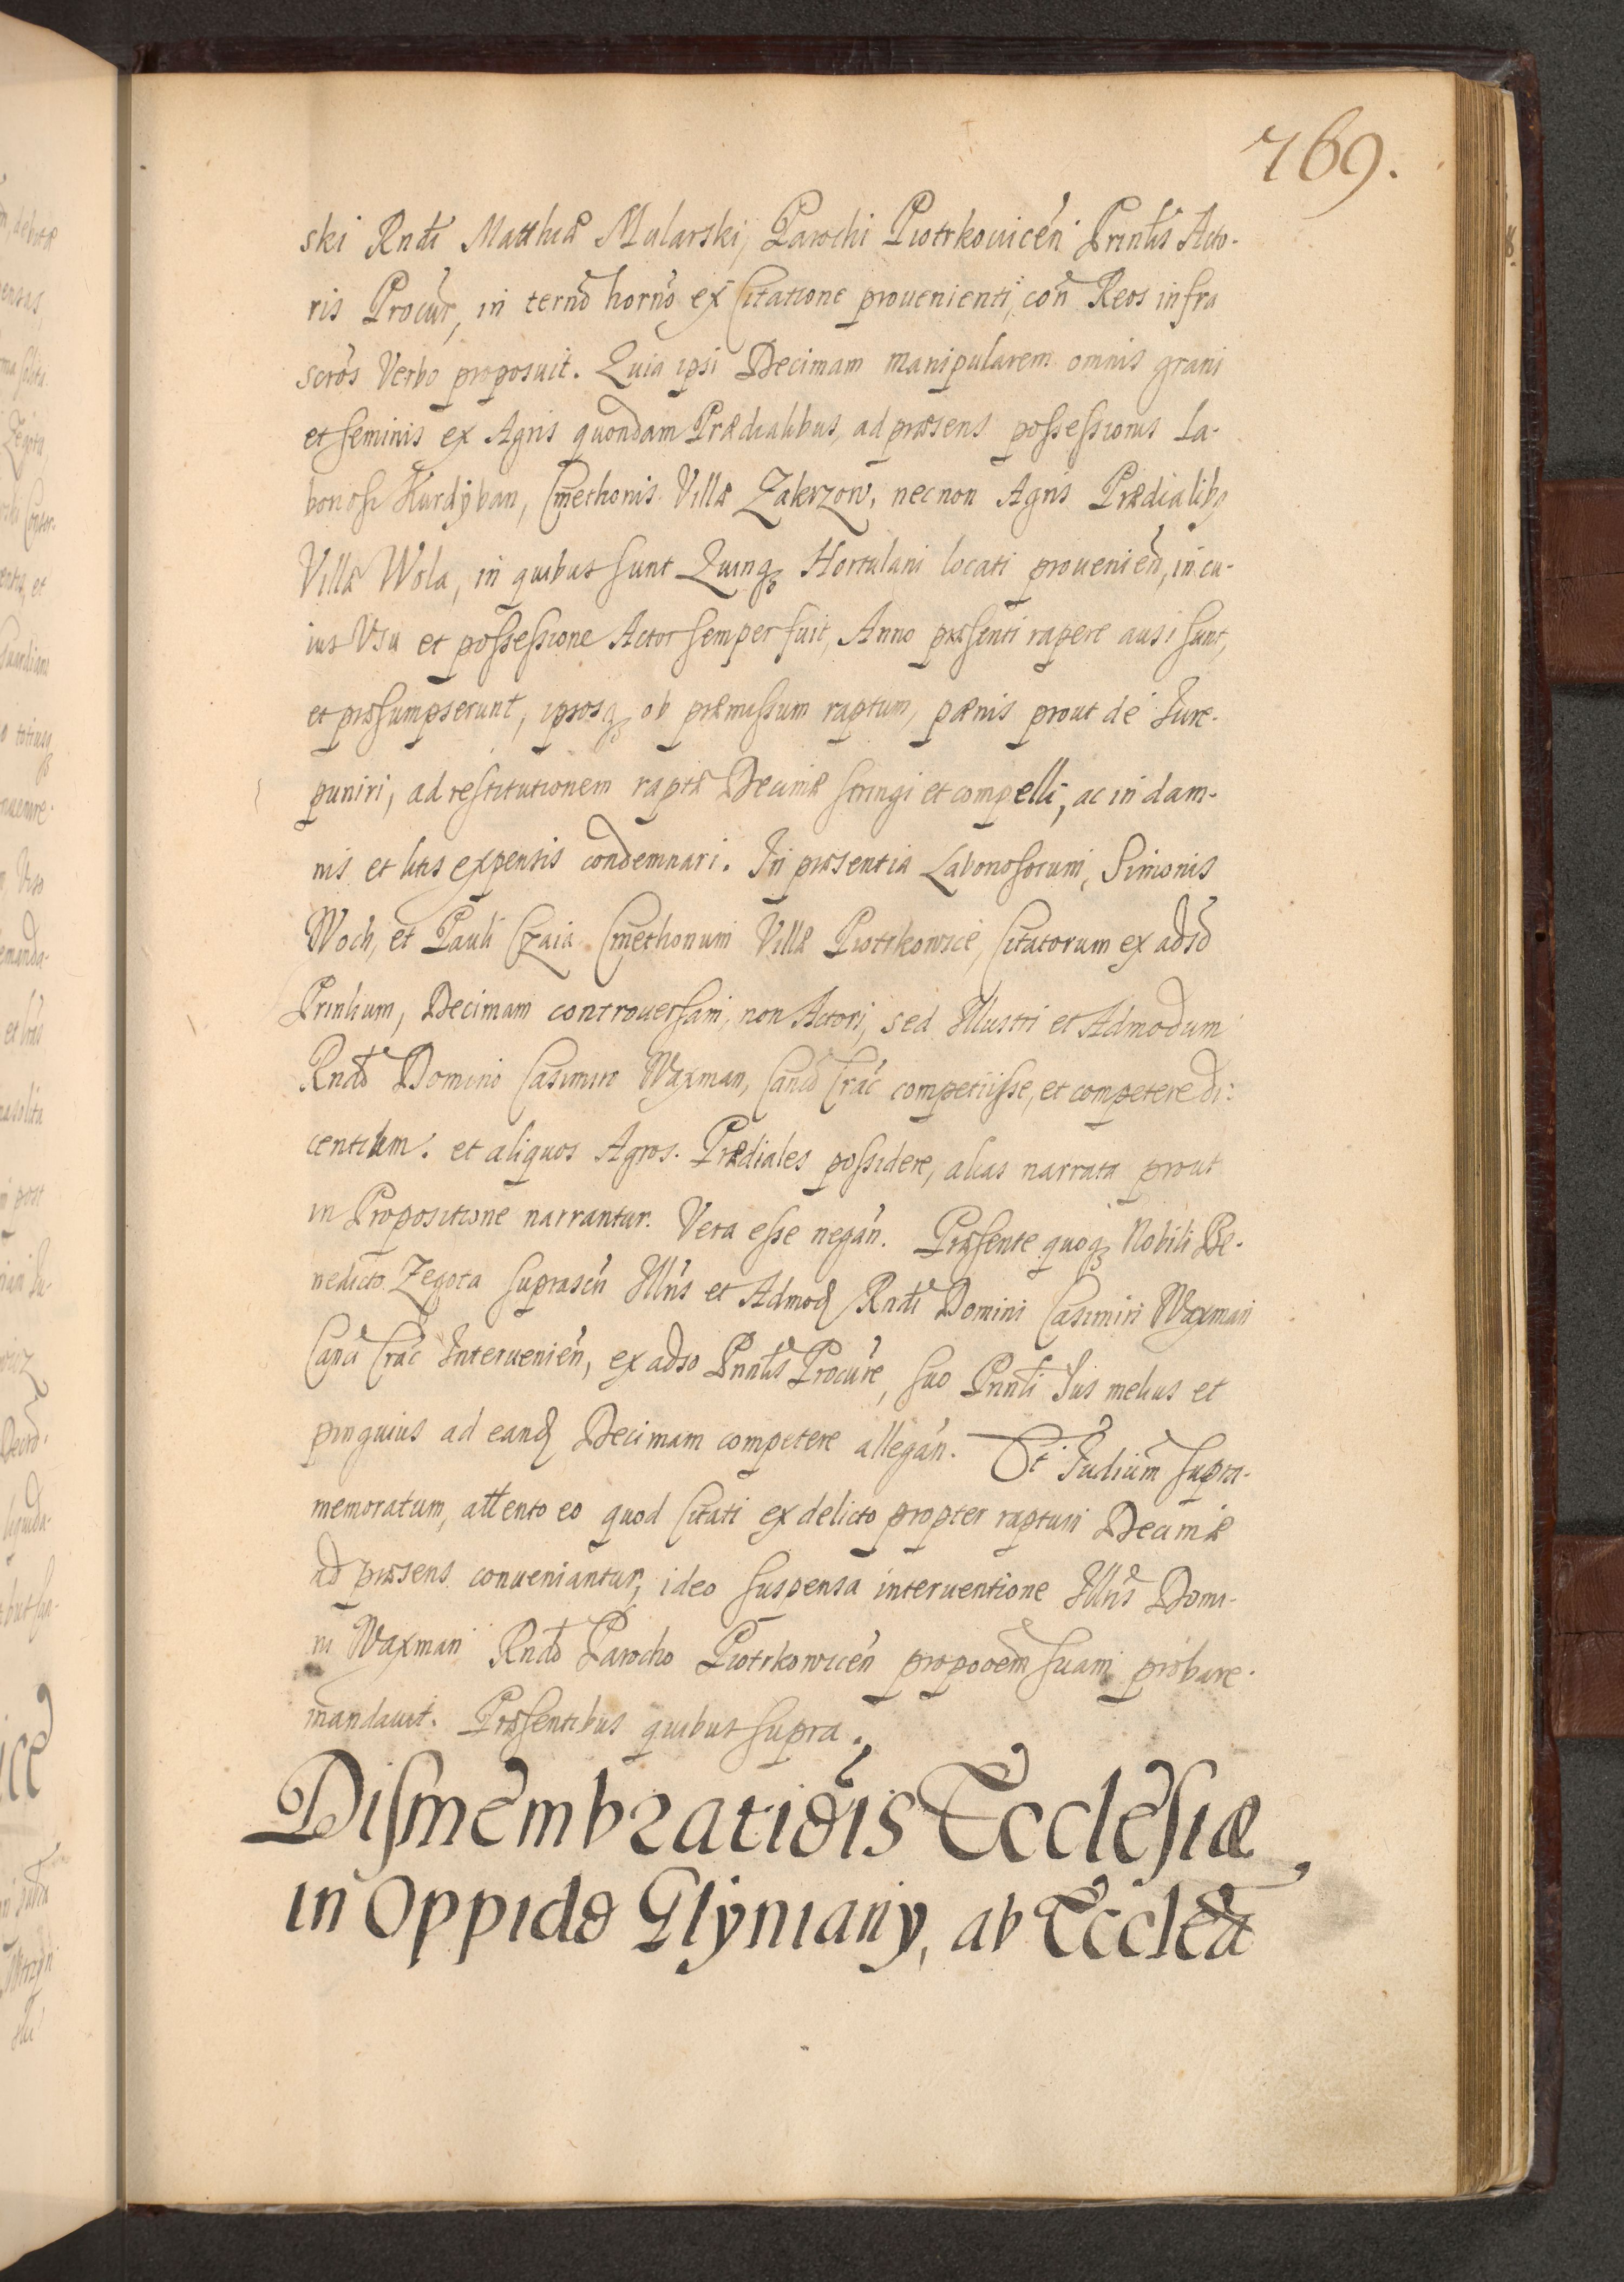 769.
ski Rndi Matthiæ Mularski, Parochi Piotrkouicen̄ Prinlis Acto-
ris Procur̄, in termo horno ex Citatione prouenienti, con̄ Reos infra
scros Verbo proposuit. Quia ipsi Decimam manipularem omnis grani
et seminis ex Agris quondam Prædialibus, ad præsens possessionis La-
boriosi Kurdÿban, Cmethonis Villæ Zakrzow, nec non Agris Prædialibg
Villæ Wola, in quibus sunt Quinqз Hortulani locati prouenien̄, in cu-
ius Vsu et possessione Actor semper fuit, Anno præsenti rapere ausi sunt,
et præsumpserunt, ipsosqз ob præmissum raptum, pænis prout de Iure
puniri, ad restitutionem raptæ Decimæ stringi et compelli, ac in dam-
nis et litis expensis condemnari. In præsentia Laboriosorum, Simonis
Woch, et Pauli Czaia Cmethonum Villæ Piotrkowice, Citatorum ex adso
Prinlium, Decimam controuersam, non Actori, sed Illustri et Admodum
Rndo Domino Casimiro Waxman, Canco Crac̄ competiisse, et competere di:
centium. et aliquos Agros Prædiales possidere, alias narrata prout
in Propositione narrantur. Vera esse negan̄. Præsente quoqз Nobili Be-
nedicto Zegota suprascri Illris et Admod Rndi Domini Casimiri Waxman
Canci Crac̄ Interuenien̄, ex adso Prinlis Procure, suo Prinli Ius melius et
pinguius ad eand Decimam competere allegan̄. Et Iudium supra-
memoratum, attento eo quod Citati ex delicto propter raptum Decimæ
ad præsens conueniantur, ideo suspensa interuentione Illris Domi-
ni Waxman Rndo Parocho Piotrkowicen̄ propooem suam probare
mandauit. Præsentibus quibus supra.
Dismembratiois Ecclesiæ
in Oppido Glÿniany, ab Ecclea